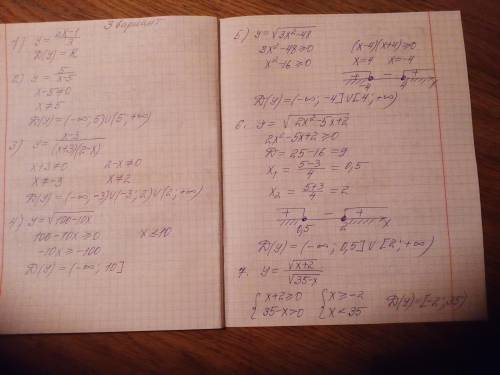 3 вариант
1) y = (2x-1)/x
D(y) = R
2) y = 5/(x-5)
x-5≠0
x≠5
D(y) = (-∞; 5)∪(5; +∞)
3) y = (x-3)/((x+3)(2-x))
x+3≠0 2-x≠0
x≠-3 x≠2
D(y) = (-∞; -3)∪(-3; 2)∪(2; +∞)
4) y = √(100-10x)
100-10x ≥ 0 x ≤ 10
-10x ≥ -100
D(y) = (-∞; 10]
5) y = √(3x²-48)
3x²-48 ≥ 0 (x-4)(x+4) ≥ 0
x²-16 ≥ 0 x=4 x=-4
+ - +
-4 4 x
D(y) = (-∞; -4]∪[4; +∞)
6. y = √(2x²-5x+2)
2x²-5x+2 ≥ 0
D = 25-16 = 9
x₁ = (5-3)/4 = 0,5
x₂ = (5+3)/4 = 2
+ - +
0,5 2 x
D(y) = (-∞; 0,5]∪[2; +∞)
7. y = √(x+2)/√(35-x)
{ x+2 ≥ 0 { x ≥ -2 D(y) = [-2; 35)
{ 35-x > 0 { x < 35